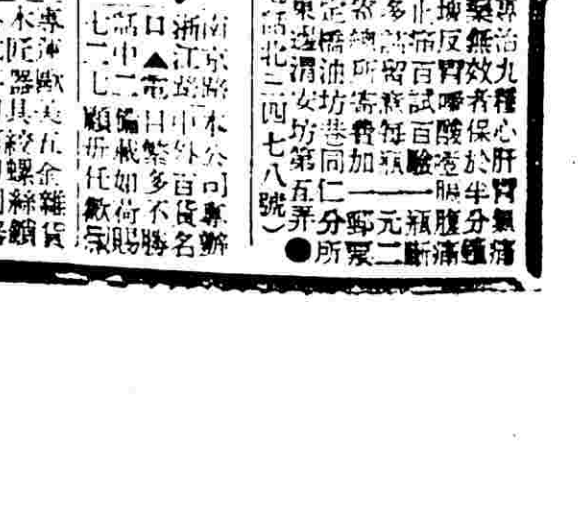 專治九種心肝胃氣痛
藥無效者保於半分鐘
壞反胃嘈酸噎膈腹痛
止痛百試百驗一瓶斷
多請留意每瓶一元二
寄總所寄費加一郵票
定橋油坊巷同仁分所
東邊渭安坊第五弄●
話北二四七八號）
南京路本公司專辦
浙江路中外百貨名
口▲電目繁多不勝
話中二備載如荷賜
七二七顧毋任歡迎
專運歐美五金雜貨
木匠器具絞螺絲鎖